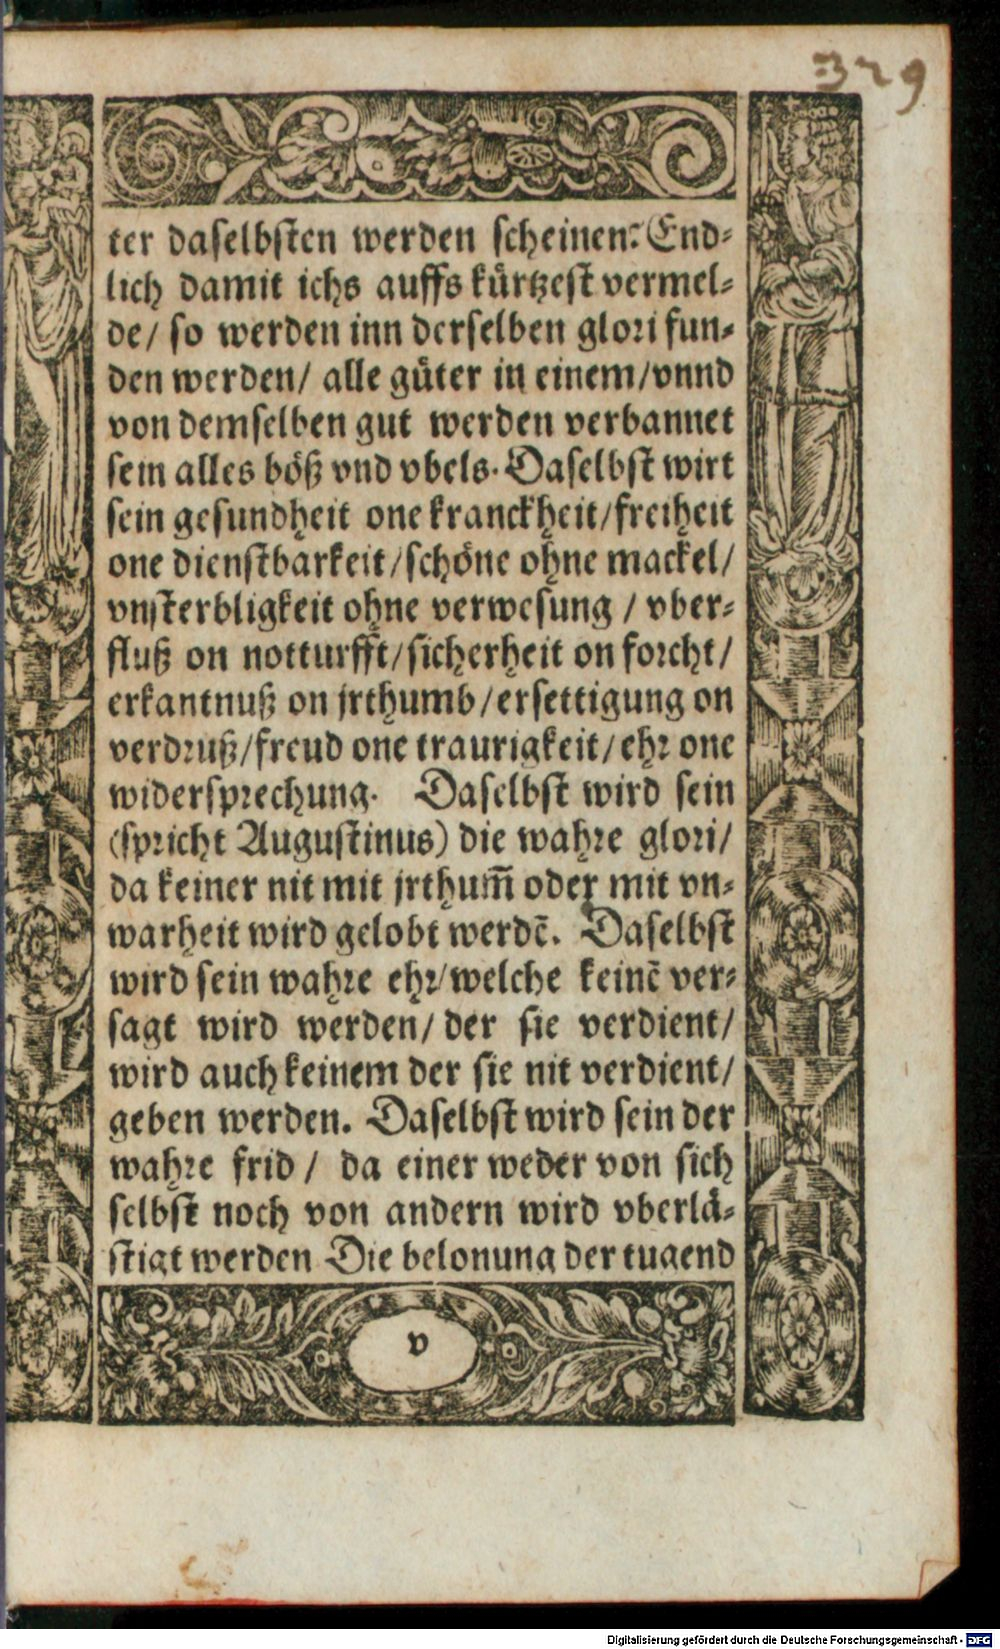 329
ter daselbsten werden scheinen. End-
lich damit ichs auffs kürtzest vermel-
de/ so werden inn derselben glori fun-
den werden/ alle güter in einem/vnnd
von demselben gut werden verbannet
sein alles böß vnd vbels. Daselbst wirt
sein gesundheit one kranckheit/freiheit
one dienstbarkeit/schöne ohne mackel/
vnsterbligkeit ohne verwesung / vber-
fluß on notturfft/sicherheit on forcht/
erkantnuß on jrthumb/ersettigung on
verdruß/freud one traurigkeit/ehr one
widersprechung. Daselbst wird sein
(spricht Augustinus) die wahre glori/
da keiner nit mit jrthum̄ oder mit vn-
warheit wird gelobt werdē. Daselbst
wird sein wahre ehr/welche keinē ver-
sagt wird werden/ der sie verdient/
wird auch keinem der sie nit verdient/
geben werden. Daselbst wird sein der
wahre frid / da einer weder von sich
selbst noch von andern wird vberlä-
stigt werden Die belonung der tugend
v
Digitalisierung gefördert durch die Deutsche Forschungsgemeinschaft - DFG